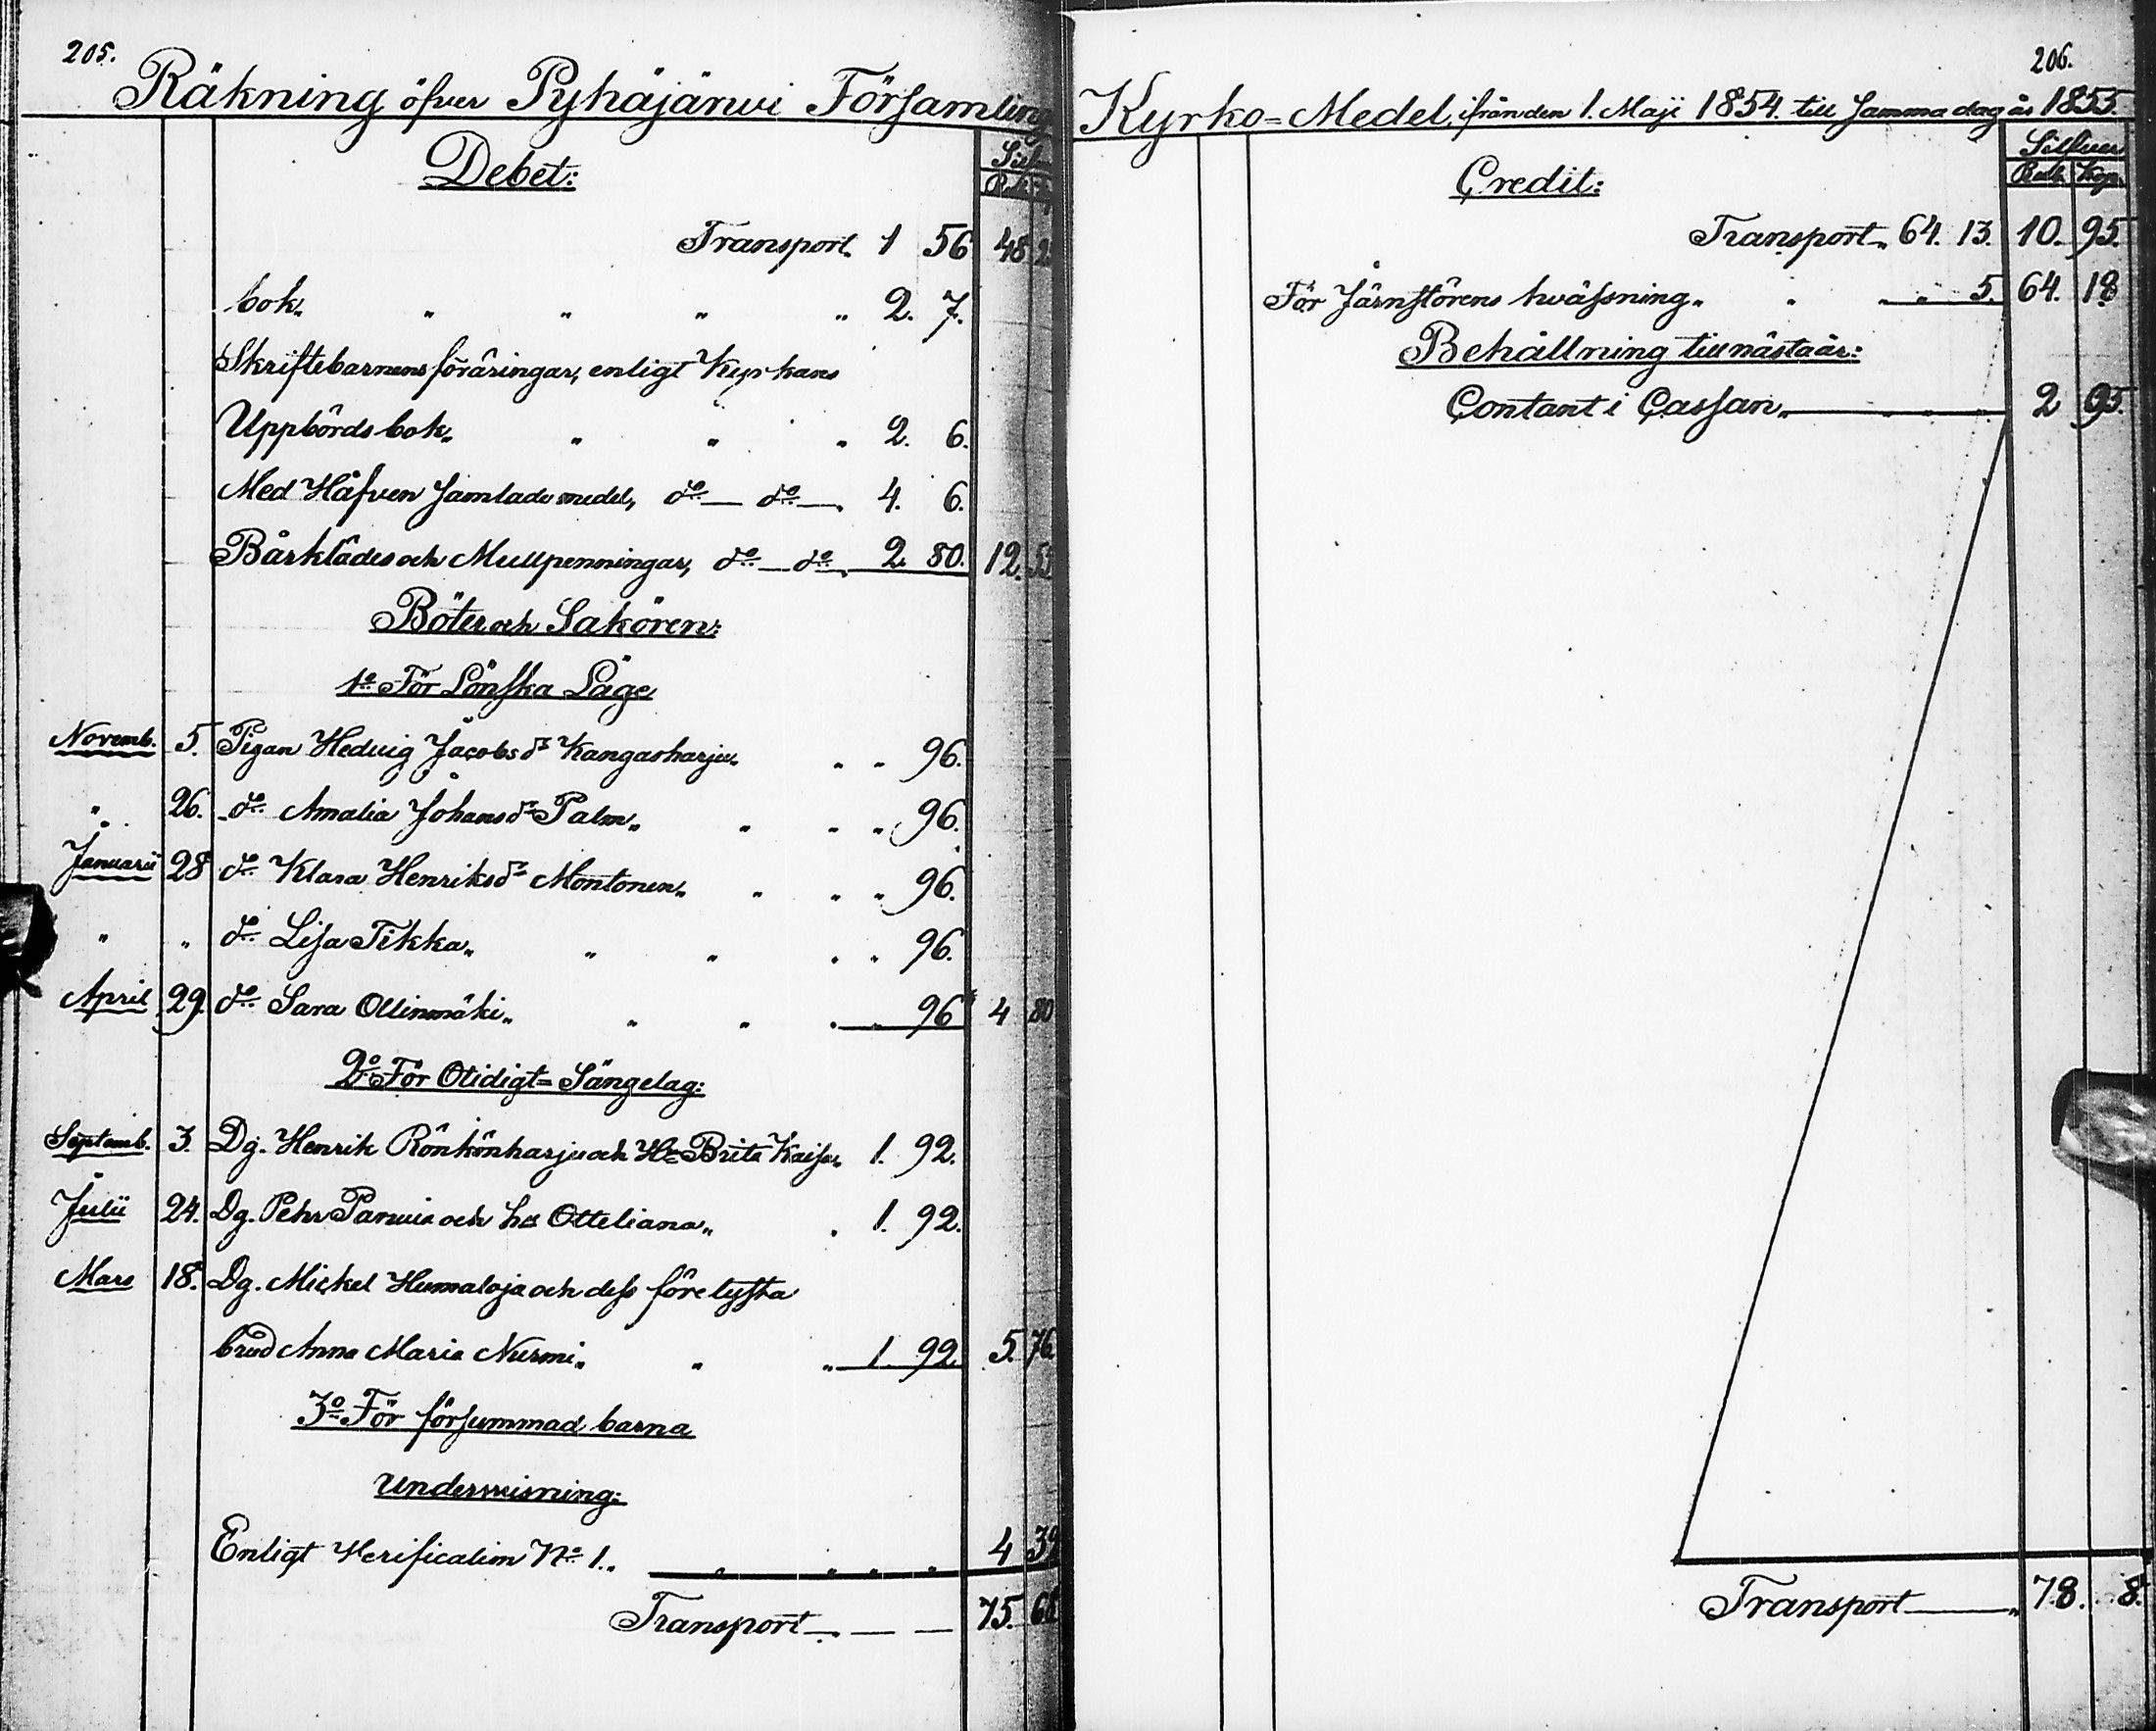 205.
Räkning öfver Pyhäjärwi Församling
Debet:
Transport. 1 56 48
bok. " " " " 2. 7.
Skriftebarnens föräringar, enligt Kyrkans
Uppbörds bok. " " " 2. 6.
Med Håfven Samlade medel, do — do — 4. 6.
Bårklädes och Mullpenningar, do — do — 2. 80. 12. 55
Böter och Sakören:
1o För Lönska Läge
Novemb. 5. Pigan Hedvig Jacobsdr Kangasharju " " 96.
" 26. do Amalia Johansdr Palm " " " 96.
Januarii 28 do Klara Henriksdr Montonen " " " 96.
" " do Lisa Tikka " " " " 96.
April 29. do Sara Ollinmäki " " " " 96 4 80
2o För Otidigt=Sängelag:
Septemb. 3. Dg. Henrik Rönkönharju och Hu Brita Kaisa 1. 92.
Julii 24. Dg. Pehr Parwia och hu Otteliana " 1. 92.
Mars 18. Dg. Mickel Humaloja och dess förelysta
brud Anna Maria Nurmi " " 1. 92. 5. 76.
3o För försummad barna
Underwisning:
Enligt Verification No 1. " " " " 4 39
Transport — — — 75.
206.
Kyrko=Medel, ifrån den 1. Maji 1854. till Samma dag år 1855.
Credit:
Silfver
Rub. Kop.
Transport 64. 13. 10. 95.
För Järnstörens hvässning " " " 5. 64. 18
Behållning till nästa år:
Contant i Cassan 2 95.
Transport 78. 8.